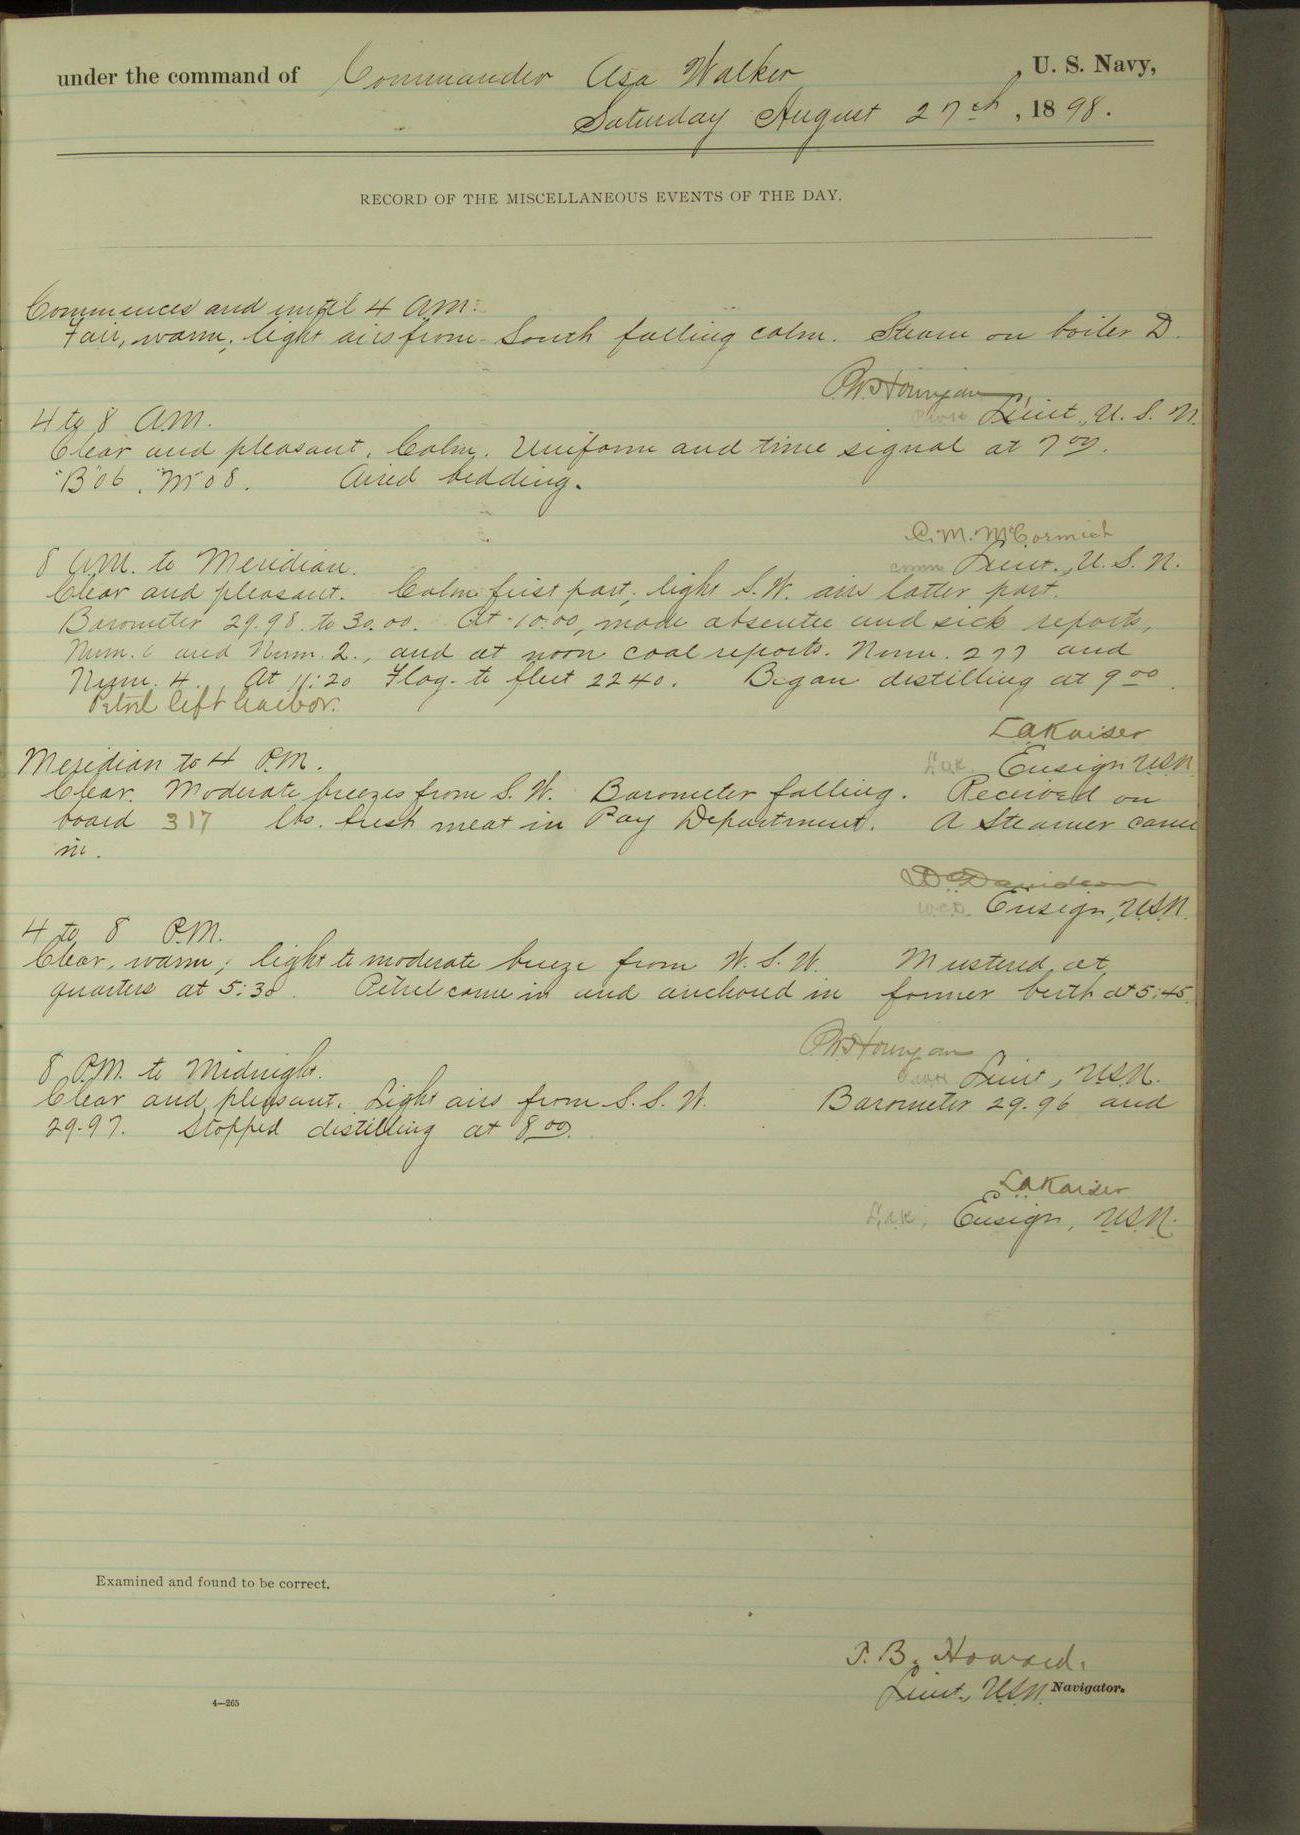 under the command of Commander Asa Walker, U. S. Navy,
Saturday August 27th, 1898.
RECORD OF THE MISCELLANEOUS EVENTS OF THE DAY.
Commences and until 4 A.M:
Fair, warm; light airs from South falling calm. Steam on boiler D.
Lieut., U. S. N.
4 to 8 A.M.
Clear and pleasant. Calm. Uniform and time signal at 7 00.
"B" 06. "M" 08. Aired bedding.
C. M. McCormick
Lieut., U. S. N.
8 A.M. to Meridian.
Clear and pleasant. Calm first part; light S.W. airs latter part.
Barometer 29.98 to 30.00. At 10.00, made absentee and sick reports,
Num. 6 and Num. 2., and at noon coal reports. Num. 277 and
Num. 4. At 11:20 Flag to fleet 2240. Began distilling at 9 00.
Petrel left harbor.
L A Kaiser
L.a.K. Ensign USN
Meridian to 4 P.M.
Clear. Moderate breezes from S. W. Barometer falling. Received on
board 317 lbs. fresh meat in Pay Department. A Steamer came
in.
W C Davidson
W.C.D. Ensign, USN.
4 to 8 P.M.
Clear, warm; light to moderate breeze from W. S. W. Mustered at
quarters at 5:30. Petrel came in and anchored in former berth at 5:45.
Lieut, USN.
8 P.M. to Midnight.
Clear and pleasant. Light airs from S. S. W. Barometer 29.96 and
29.97. Stopped distilling at 8 00.
L A Kaiser
L.a.K. Ensign, USN.
Examined and found to be correct.
T. B. Howard,
Lieut., USN. Navigator.
4—265